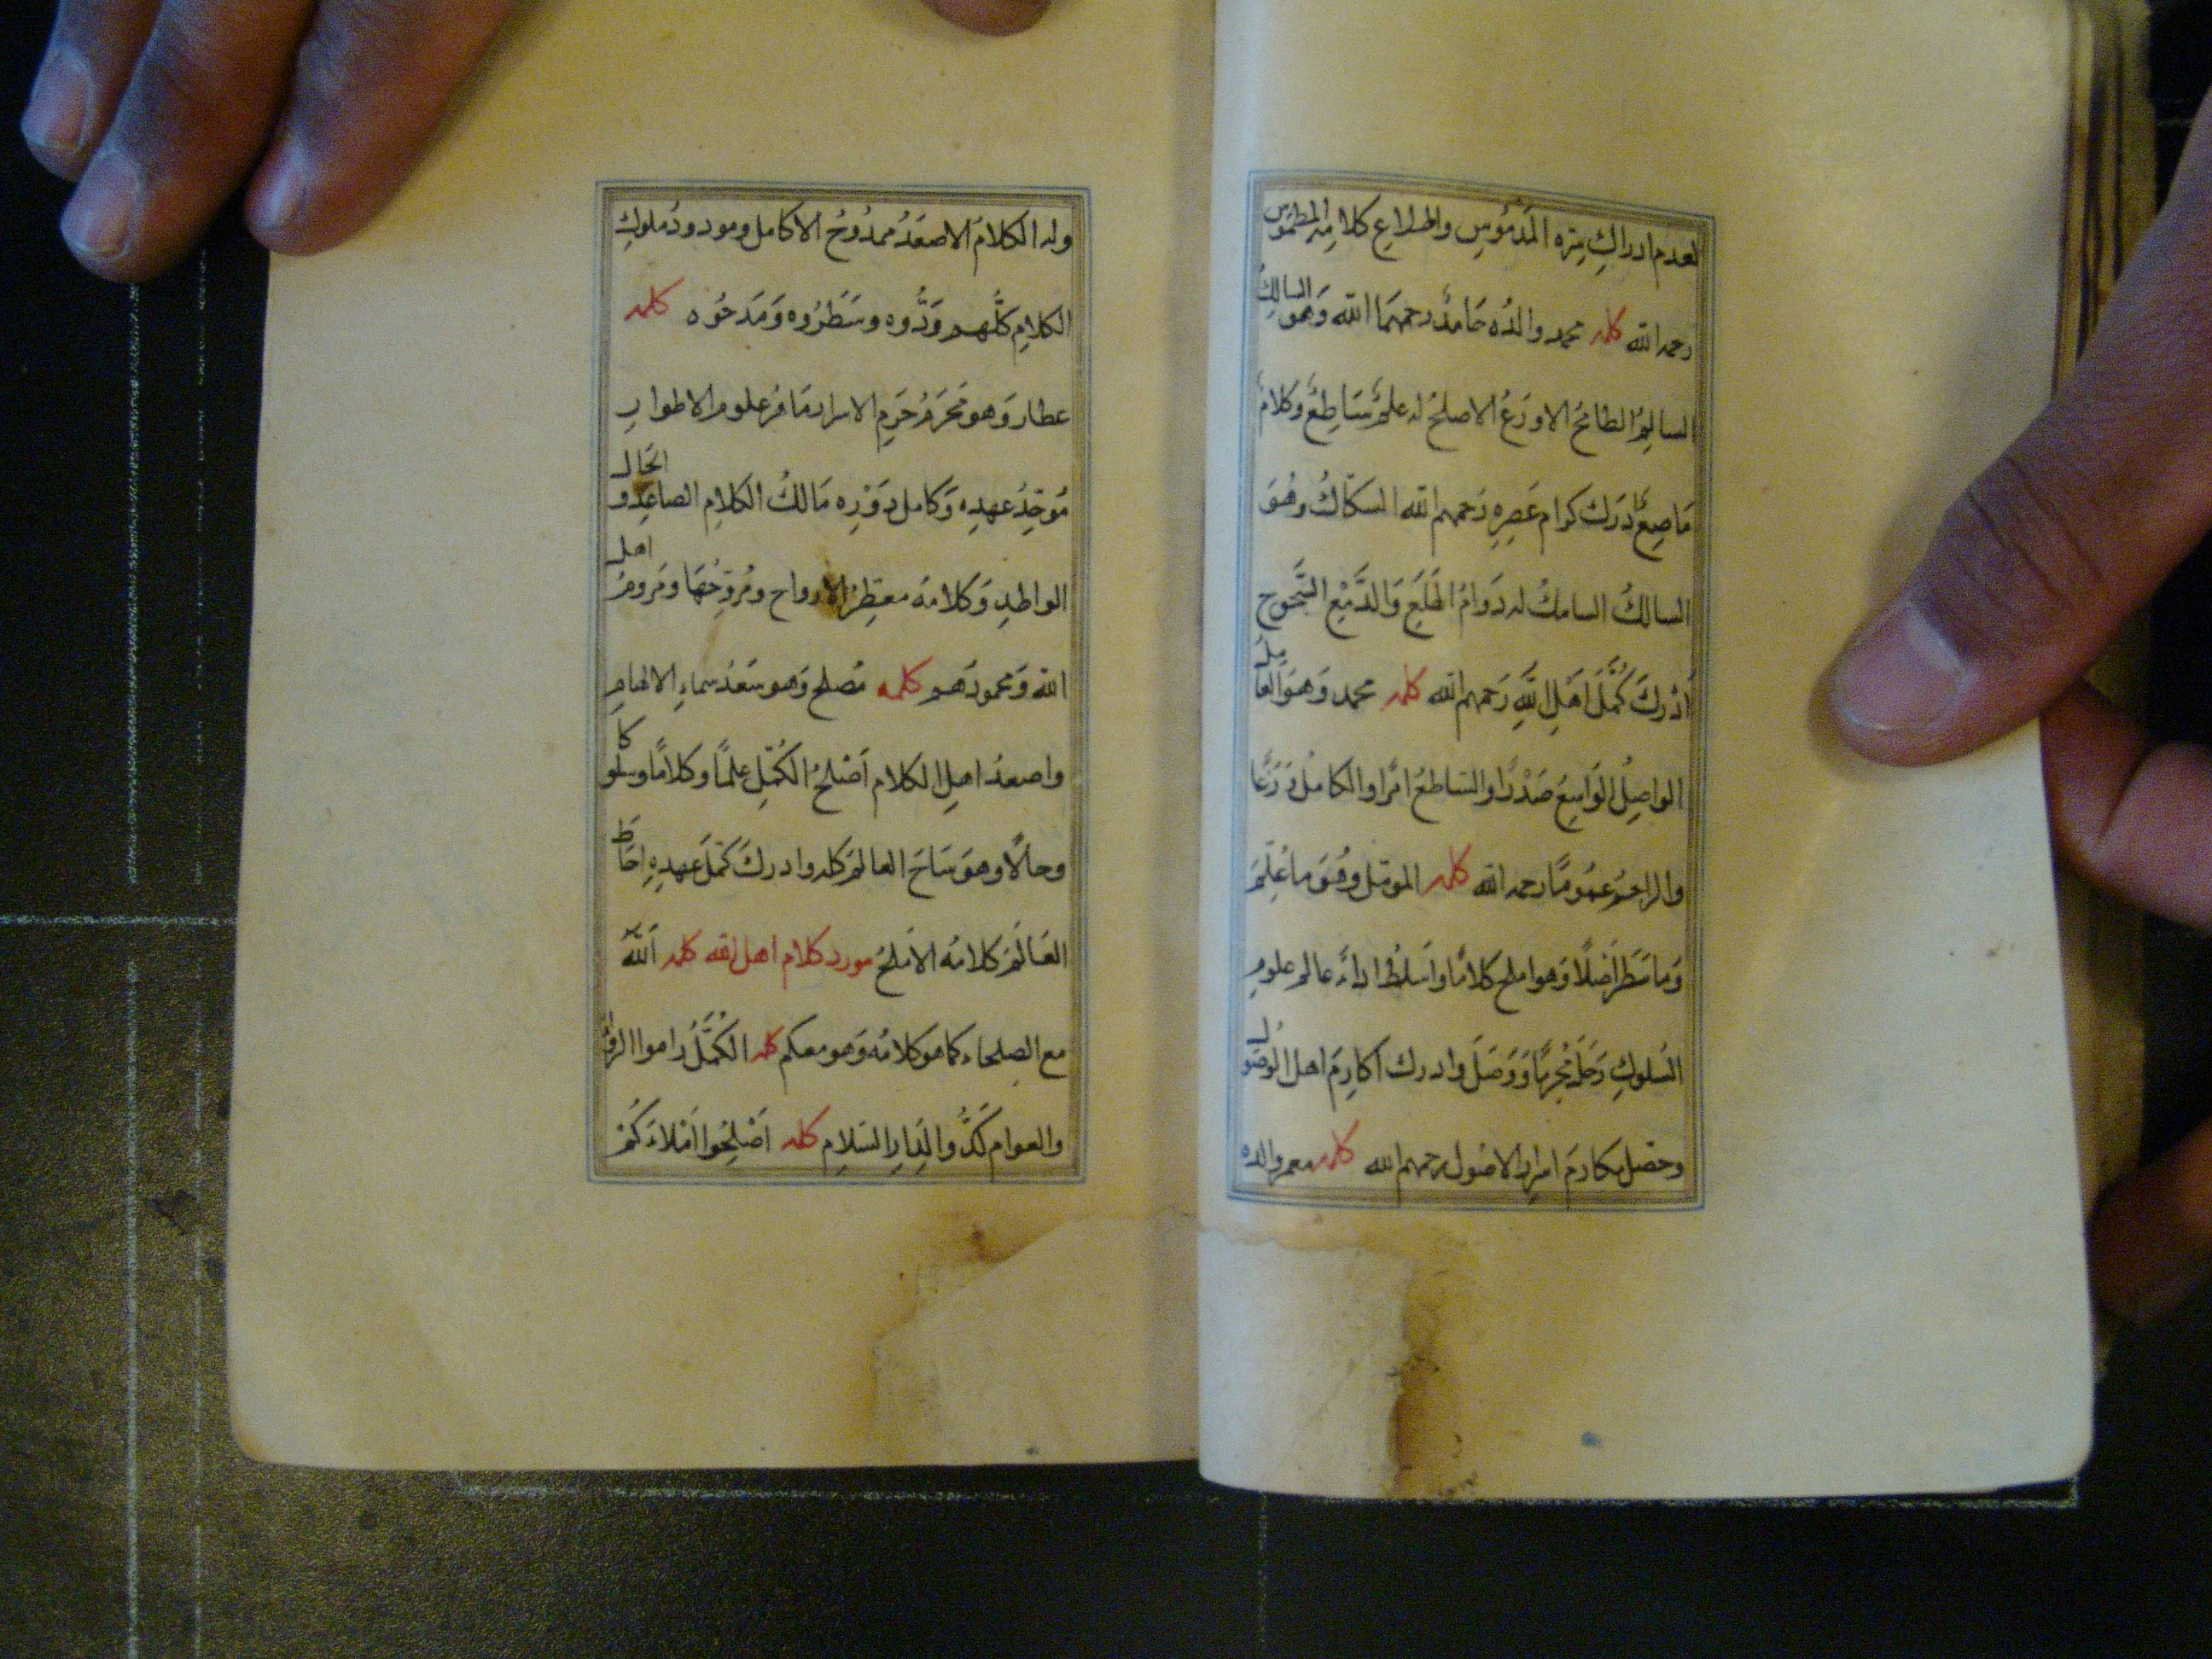 لعدم ادراك سره المدموس واطلاع كلامه المطموس
رحمه الله كلمه محمد والده حامد رحمهما الله وهو السالك
السالم الطامح الاورع الاصلح له علم ساطع وكلام
ماصع ادرك كرام عصره رحمهم الله السكاك وهو
السالك السامك له دوام الهلع والدمع السحوح
ادرك كمل اهل الله رحمهم الله كلمه محمد وهو العامل
الواصل الواسع صدرا والساطع اثرا والكامل ورعا
والراحم عموما رحمه الله كلمه المومل وهو ما علم
وما سطر اصلا وهو املح كلاما واسلط اداء عالم علوم
السلوك رحل محرما ووصل وادرك اكارم اهل الوصول
وحصل مكارم اسرار الاصول رحمهم الله كلمه معمر والده
وله الكلام الاصعد ممدوح الاكامل ومودود ملوك
الكلام كلهم ودوه وسطروه ومدحوه كلمه
عطار وهو محرم حرم الاسرار ماهر علوم الاطوار
موحد عهده وكامل دوره مالك الكلام الصاعد والحال
الواطد وكلامه معطر الارواح ومروحها ومروم اهل
الله ومحمودهم كلمه مصلح وهو سعد سماء الالهام
واصعد اهل الكلام اصلح الكمل علما وكلاما وسلوكا
وحالا وهو ساح العالم كله وادرك كمل عهده احاط
العالم كلامه الاملح مورد كلام اهل الله كلمه الله
مع الصلحاء كما هو كلامه وهو معكم كلمه الكمل راموا
والعوام كدوا لدار السلام كلمه اصلحوا املاءكم